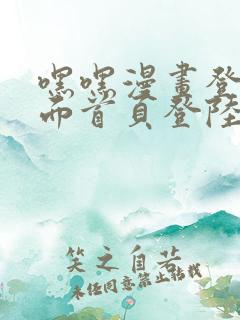 嘿嘿漫畫登
面首頁登陸
笑之自若
未经同意禁止转载